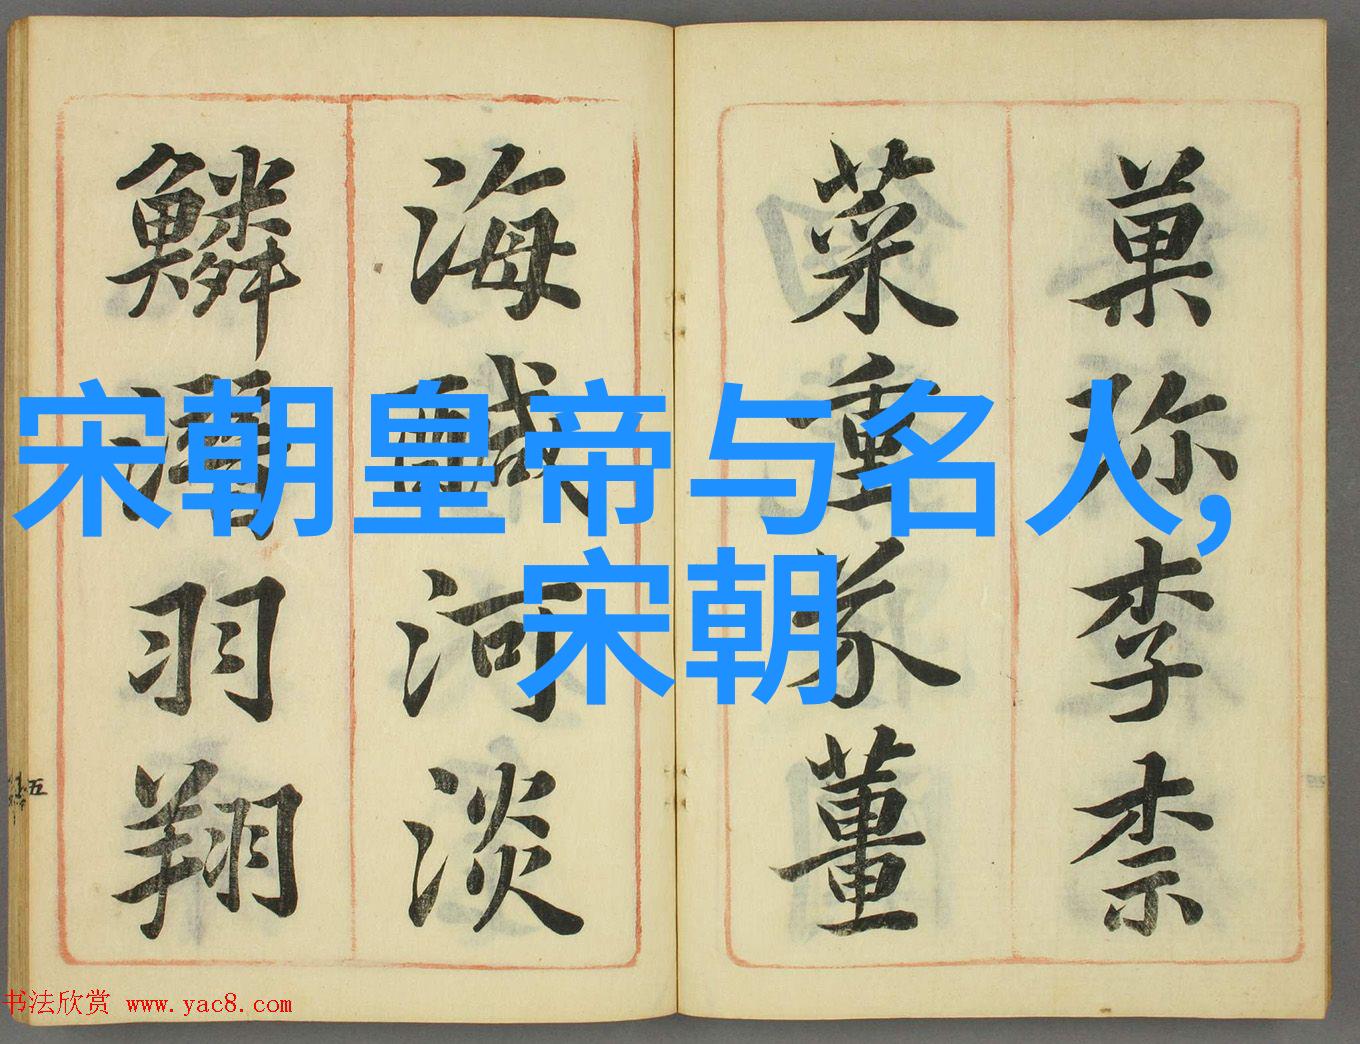 菓珎李柰
菜重芥薑
海鹹河淡
鱗潛羽翔
五
宋朝皇帝与名人,
宋朝
书法欣赏 www.yac8.com